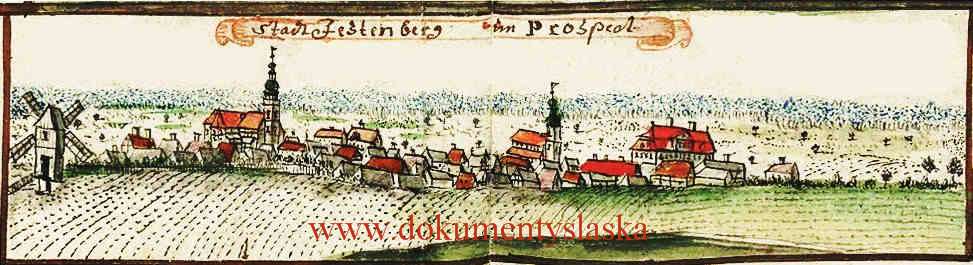 Stadt Festenberg im Prospect
www.dokumentyslaska